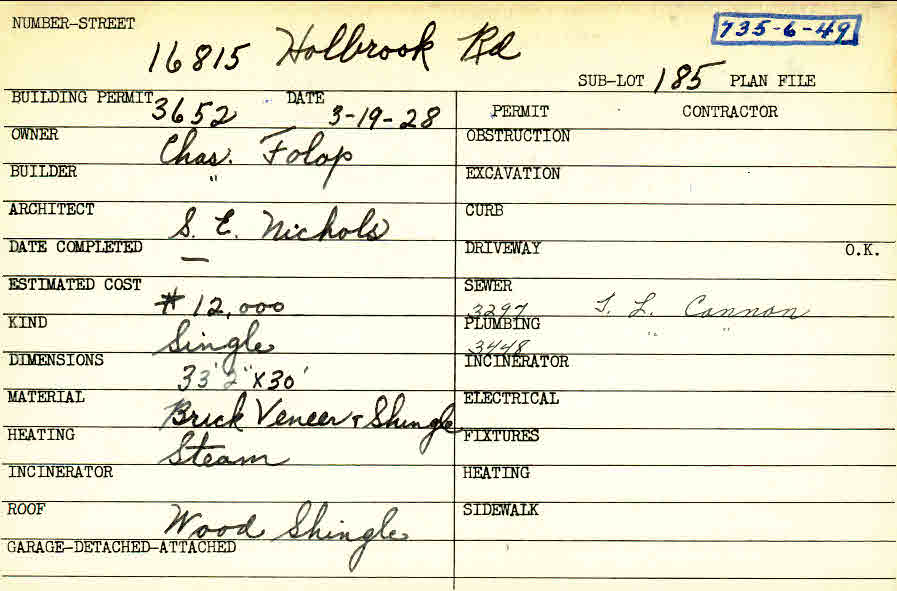 NUMBER-STREET
16815 Holbrook Rd
735-6-49
SUB-LOT 185 PLAN FILE
BUILDING PERMIT 3652 DATE 3-19-28
PERMIT CONTRACTOR
OWNER Chas. Folop
OBSTRUCTION
BUILDER "
EXCAVATION
ARCHITECT S. E. Nichols
CURB
DATE COMPLETED —
DRIVEWAY O.K.
ESTIMATED COST # 12,000
SEWER 3297 T. L. Cannon
KIND Single
PLUMBING 3448 " "
DIMENSIONS 33'2" X 30'
INCINERATOR
MATERIAL Brick Veneer & Shingle
ELECTRICAL
HEATING Steam
FIXTURES
INCINERATOR
HEATING
ROOF Wood Shingle
SIDEWALK
GARAGE-DETACHED-ATTACHED